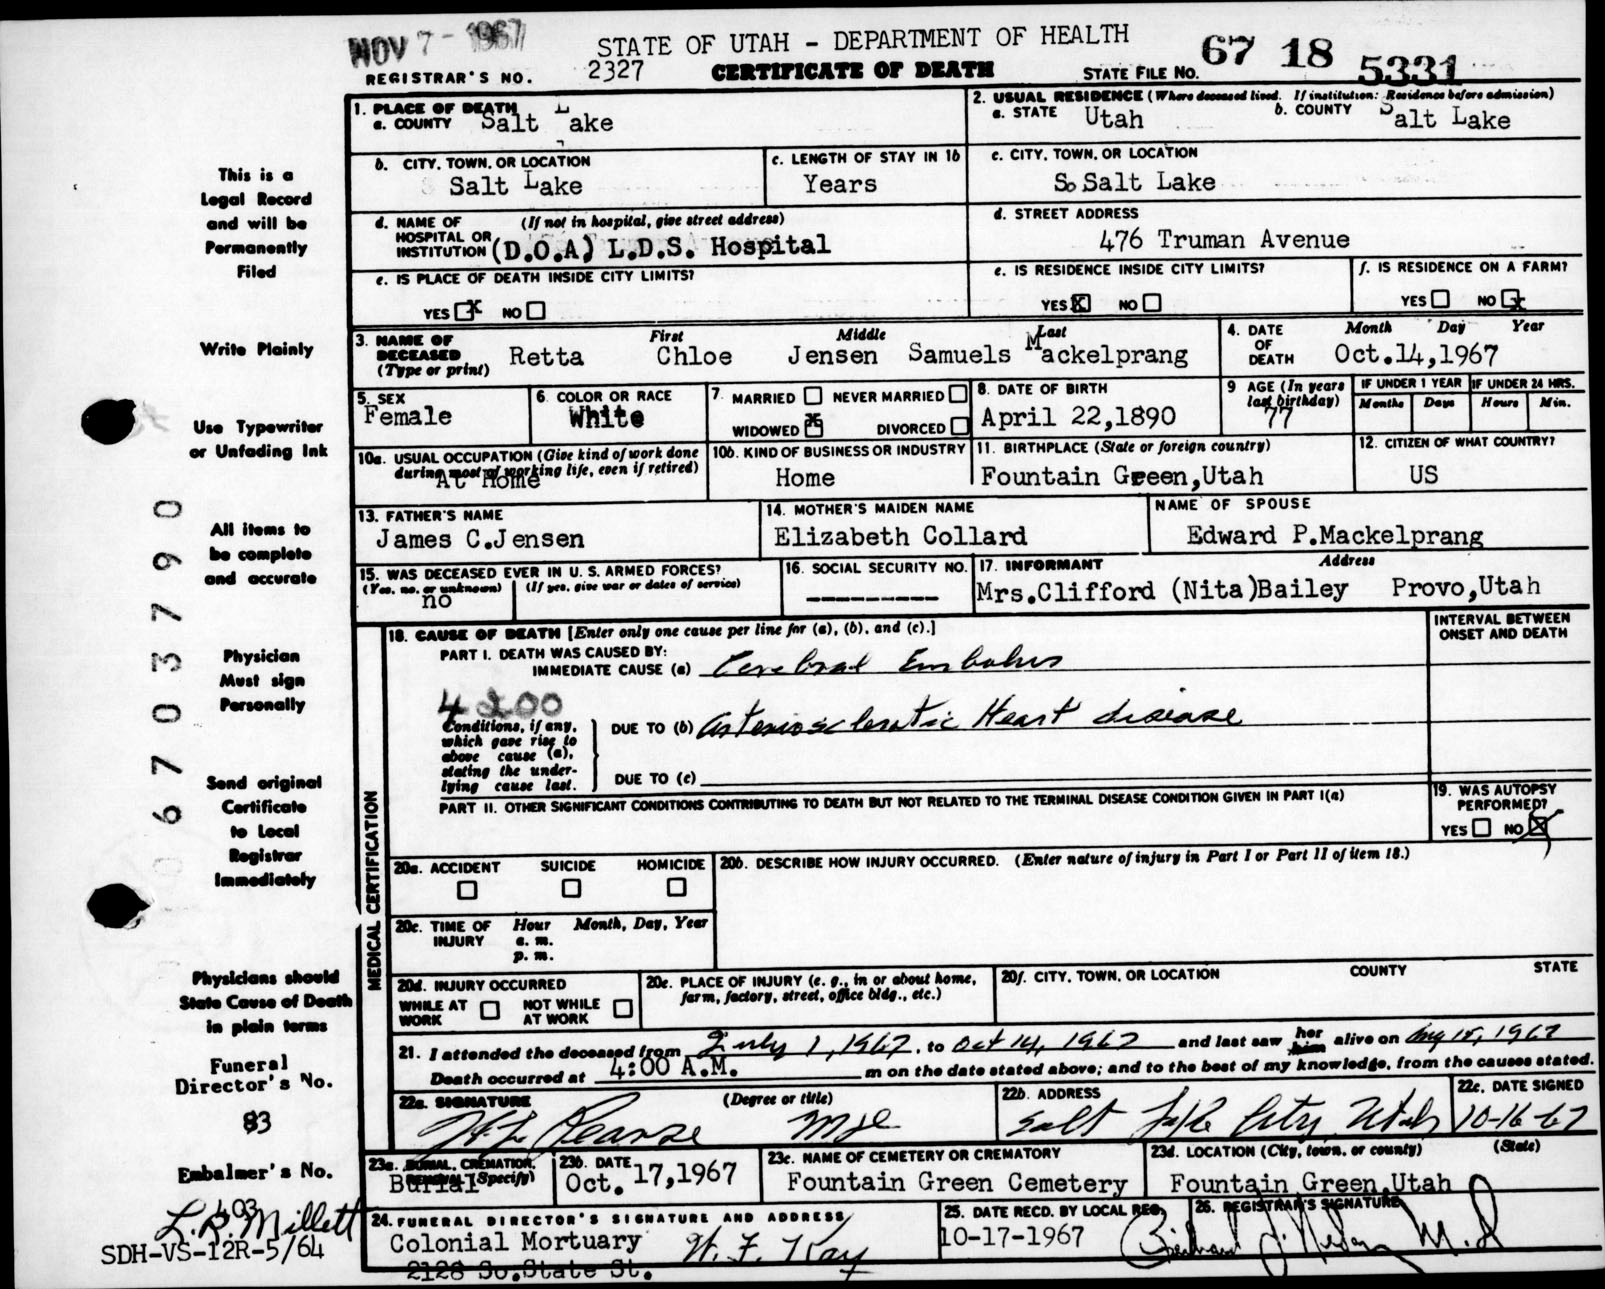 NOV 7 - 1967
STATE OF UTAH - DEPARTMENT OF HEALTH
REGISTRAR'S NO. 2327 CERTIFICATE OF DEATH STATE FILE NO. 67 18 5331
1. PLACE OF DEATH
a. COUNTY Salt Lake
2. USUAL RESIDENCE (Where deceased lived. If institution: Residence before admission)
a. STATE Utah b. COUNTY Salt Lake
b. CITY, TOWN, OR LOCATION
Salt Lake
c. LENGTH OF STAY IN 1b
Years
c. CITY, TOWN, OR LOCATION
So Salt Lake
d. NAME OF HOSPITAL OR INSTITUTION (If not in hospital, give street address)
(D.O.A) L.D.S. Hospital
d. STREET ADDRESS
476 Truman Avenue
e. IS PLACE OF DEATH INSIDE CITY LIMITS?
YES x NO
e. IS RESIDENCE INSIDE CITY LIMITS?
YES X NO
f. IS RESIDENCE ON A FARM?
YES NO x
3. NAME OF DECEASED (Type or print)
First Middle Last
Retta Chloe Jensen Samuels Mackelprang
4. DATE OF DEATH
Month Day Year
Oct.14,1967
5. SEX
Female
6. COLOR OR RACE
White
7. MARRIED NEVER MARRIED
WIDOWED x DIVORCED
8. DATE OF BIRTH
April 22,1890
9 AGE (In years last birthday)
77
IF UNDER 1 YEAR
Months Days
IF UNDER 24 HRS.
Hours Min.
10a. USUAL OCCUPATION (Give kind of work done during most of working life, even if retired)
At Home
10b. KIND OF BUSINESS OR INDUSTRY
Home
11. BIRTHPLACE (State or foreign country)
Fountain Green,Utah
12. CITIZEN OF WHAT COUNTRY?
US
13. FATHER'S NAME
James C.Jensen
14. MOTHER'S MAIDEN NAME
Elizabeth Collard
NAME OF SPOUSE
Edward P.Mackelprang
15. WAS DECEASED EVER IN U. S. ARMED FORCES?
(Yes, no, or unknown) (If yes, give war or dates of service)
no
16. SOCIAL SECURITY NO.
---------
17. INFORMANT Address
Mrs.Clifford (Nita)Bailey Provo,Utah
MEDICAL CERTIFICATION
18. CAUSE OF DEATH [Enter only one cause per line for (a), (b), and (c).]
INTERVAL BETWEEN ONSET AND DEATH
PART I. DEATH WAS CAUSED BY:
IMMEDIATE CAUSE (a) Cerebral Embolus
4200
Conditions, if any, which gave rise to above cause (a), stating the underlying cause last.
DUE TO (b) Arteriosclerotic Heart disease
DUE TO (c)
PART II. OTHER SIGNIFICANT CONDITIONS CONTRIBUTING TO DEATH BUT NOT RELATED TO THE TERMINAL DISEASE CONDITION GIVEN IN PART I(a)
19. WAS AUTOPSY PERFORMED?
YES NO X
20a. ACCIDENT SUICIDE HOMICIDE
20b. DESCRIBE HOW INJURY OCCURRED. (Enter nature of injury in Part I or Part II of item 18.)
20c. TIME OF INJURY Hour Month, Day, Year
a. m.
p. m.
20d. INJURY OCCURRED
WHILE AT WORK NOT WHILE AT WORK
20e. PLACE OF INJURY (e. g., in or about home, farm, factory, street, office bldg., etc.)
20f. CITY, TOWN, OR LOCATION COUNTY STATE
21. I attended the deceased from July 1, 1967, to Oct 14, 1967 and last saw her him alive on Aug 18, 1967
Death occurred at 4:00 A.M. m on the date stated above; and to the best of my knowledge, from the causes stated.
22a. SIGNATURE (Degree or title)
H.L. Pearse MD
22b. ADDRESS
Salt Lake City, Utah
22c. DATE SIGNED
10-16-67
23a. BURIAL, CREMATION, REMOVAL (Specify)
Burial
23b. DATE
Oct. 17,1967
23c. NAME OF CEMETERY OR CREMATORY
Fountain Green Cemetery
23d. LOCATION (City, town, or county) (State)
Fountain Green,Utah
24. FUNERAL DIRECTOR'S SIGNATURE AND ADDRESS
Colonial Mortuary W. F. Kay
2128 So.State St.
25. DATE RECD. BY LOCAL REG.
10-17-1967
26. REGISTRAR'S SIGNATURE
M.D
This is a
Legal Record
and will be
Permanently
Filed
Write Plainly
Use Typewriter
or Unfading Ink
All items to
be complete
and accurate
Physician
Must sign
Personally
Send original
Certificate
to Local
Registrar
Immediately
Physicians should
State Cause of Death
in plain terms
Funeral
Director's No.
83
Embalmer's No.
403
L. R. Millett
SDH-VS-12R-5/64
6703790